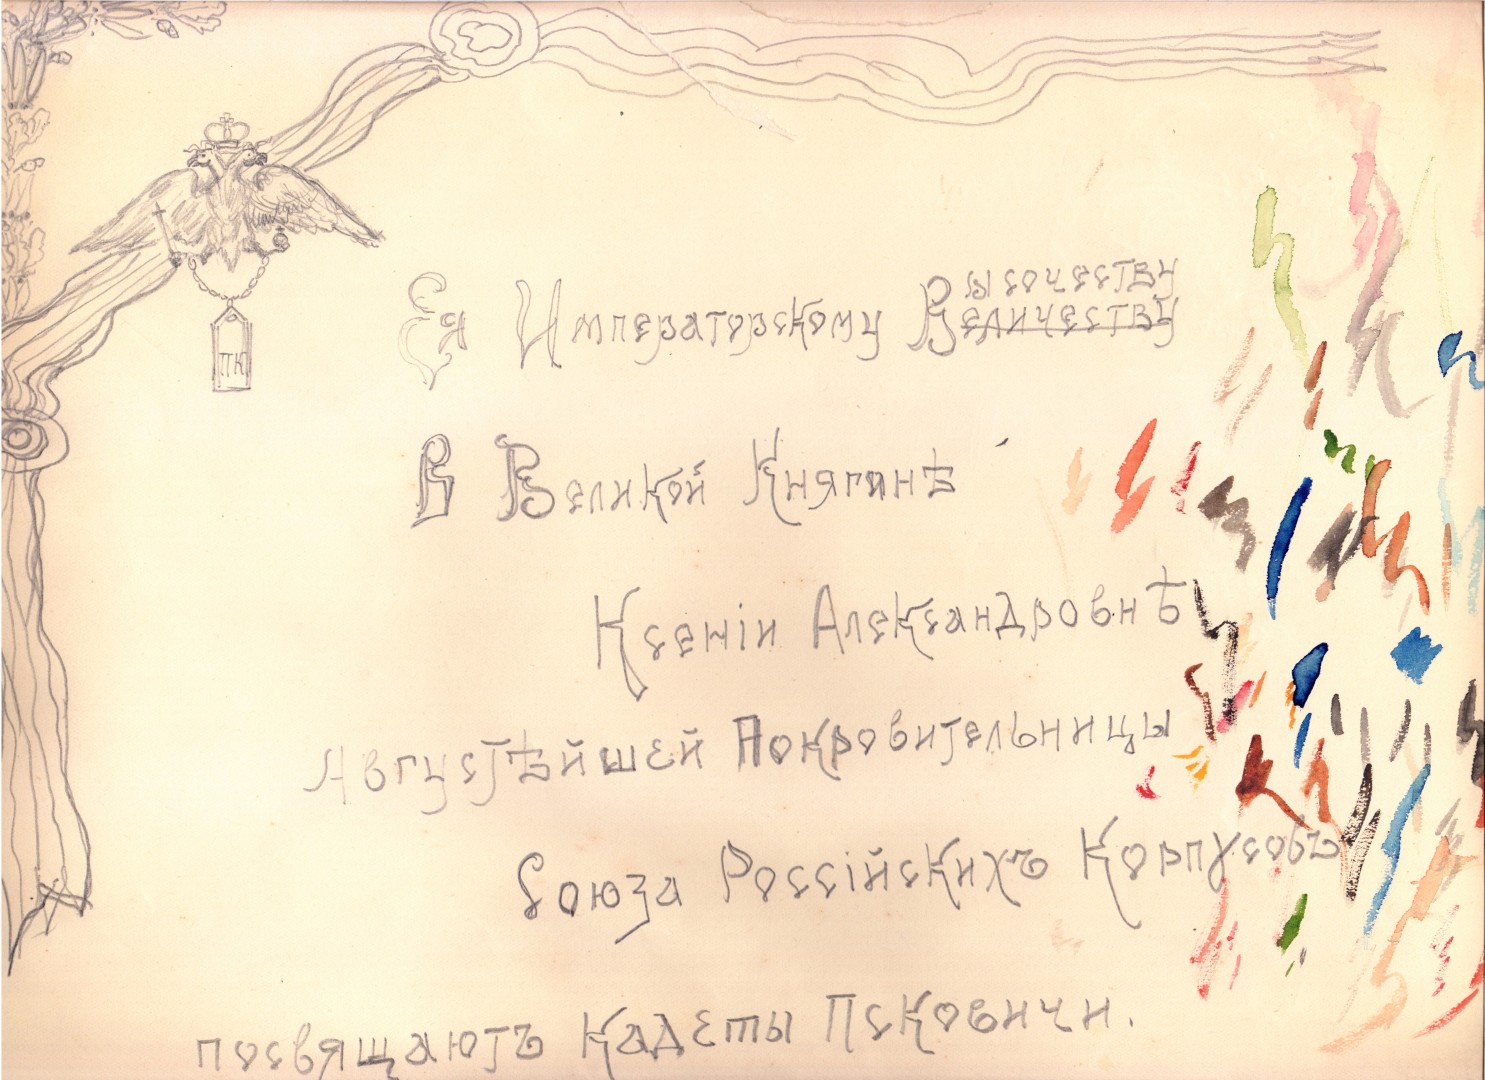 ПК
Ея Императорскому Высочеству
Величеству
В Великой Княгинѣ
Ксеніи Александровнѣ
Августѣйшей Покровительницы
Союза Россійскихъ Корпусовъ
посвящаютъ Кадеты Псковичи.